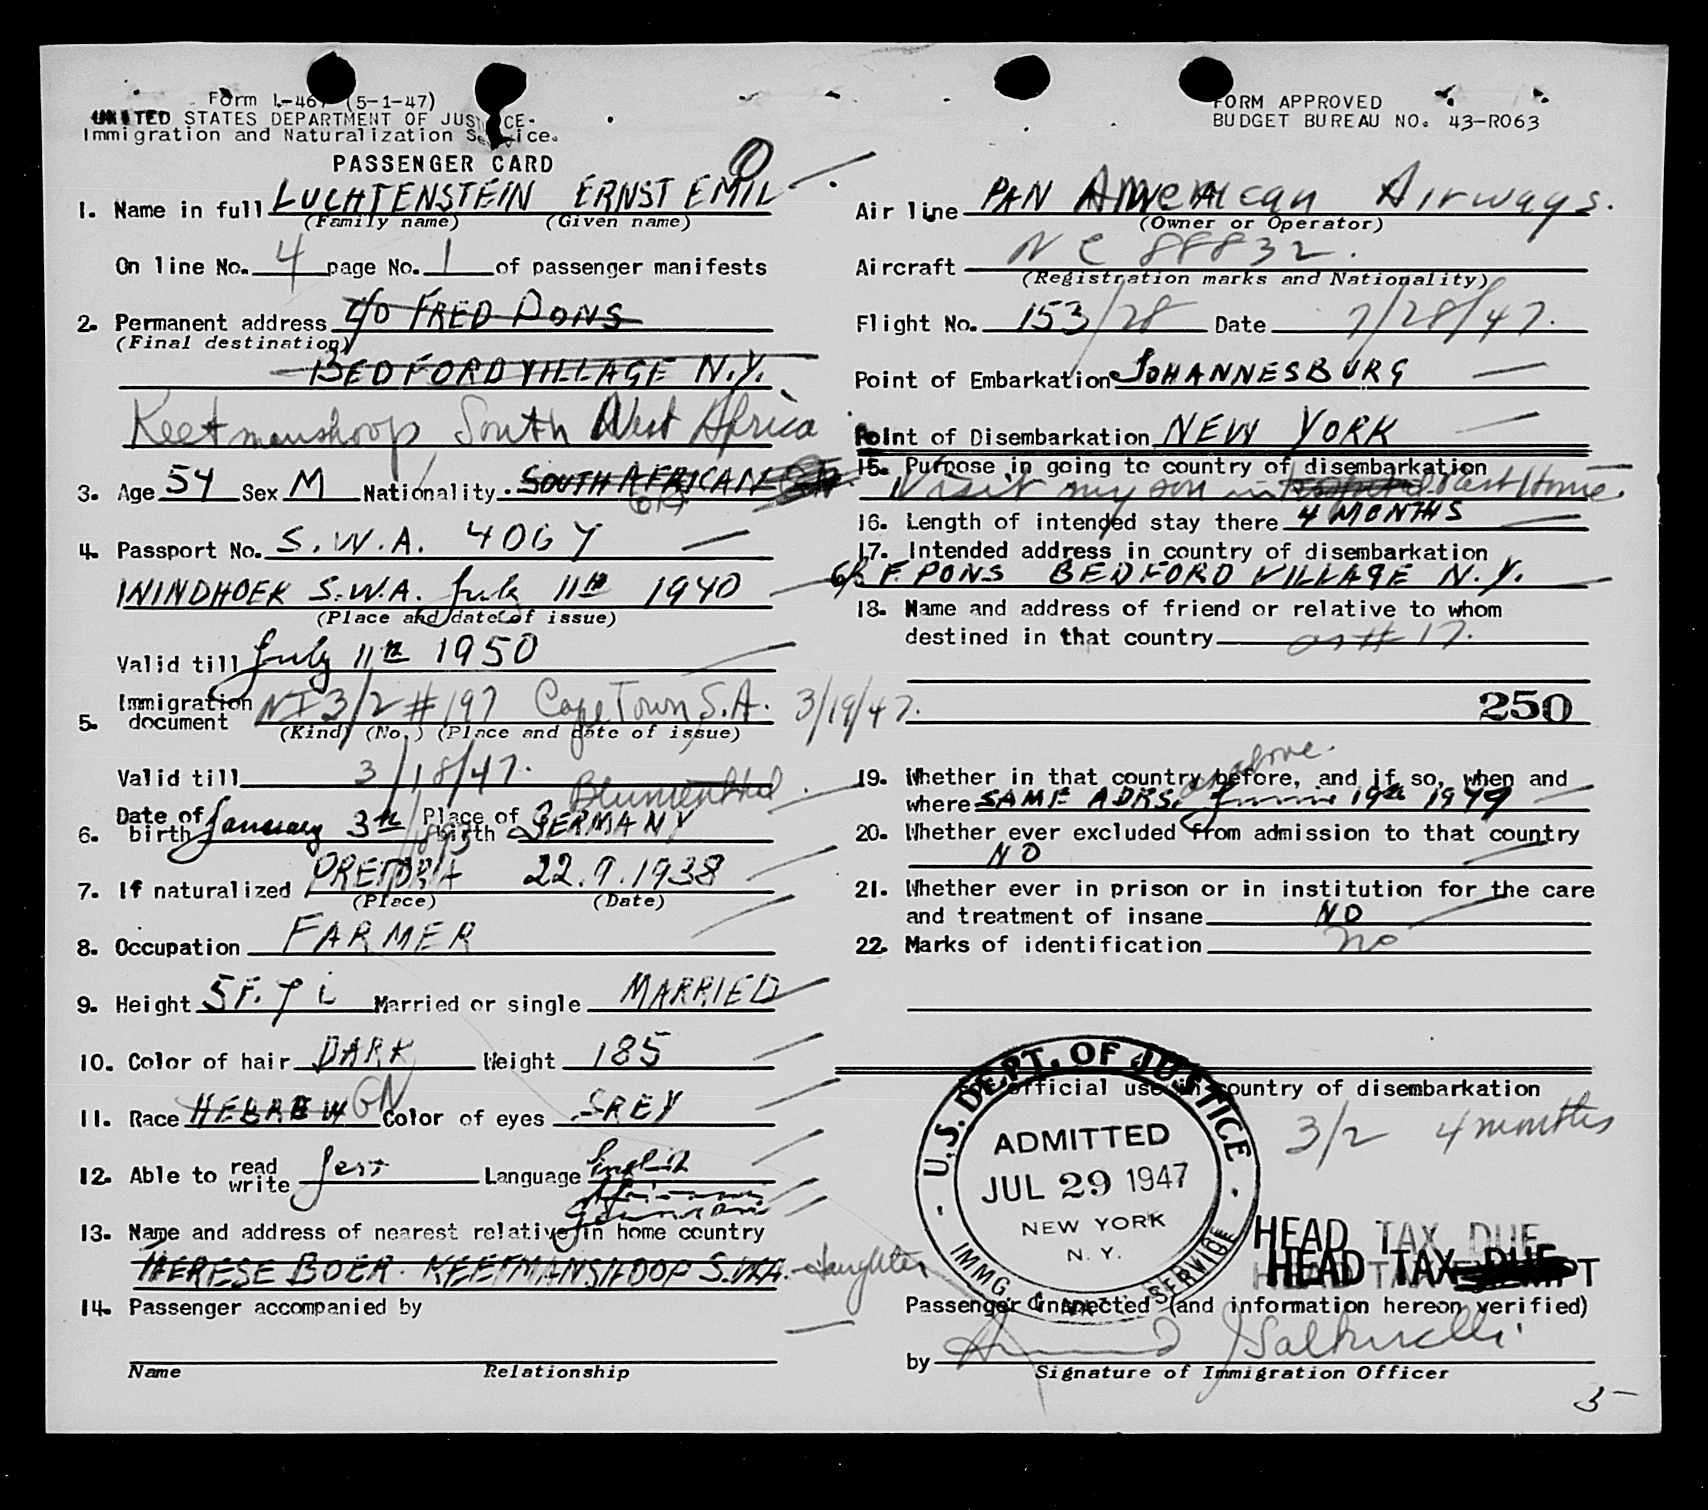 Form I-467 (5-1-47)
UNITED STATES DEPARTMENT OF JUSTICE-
Immigration and Naturalization Service.
FORM APPROVED
BUDGET BUREAU NO. 43-R063
PASSENGER CARD
1. Name in full LUCHTENSTEIN ERNST EMIL
(Family name) (Given name)
On line No. 4 page No. 1 of passenger manifests
2. Permanent address c/o FRED PONS
(Final destination)
BEDFORD VILLAGE N.Y.
Keetmanshoop South West Africa
3. Age 54 Sex M Nationality SOUTH AFRICAN
4. Passport No. S.W.A. 4067
WINDHOEK S.W.A. July 11th 1940
(Place and date of issue)
Valid till July 11th 1950
5. Immigration document NI 3/2 #197 Cape Town S.A. 3/19/47.
(Kind) (No.) (Place and date of issue)
Valid till 3/18/47.
Blumenthal
6. Date of birth January 3th 1893 Place of birth GERMANY
7. If naturalized PRETORIA 22.9.1938
(Place) (Date)
8. Occupation FARMER
9. Height 5 F. 7 i Married or single MARRIED
10. Color of hair DARK Weight 185
11. Race HEBREW GN Color of eyes GREY
12. Able to read write yes Language English
German
13. Name and address of nearest relative in home country
THERESE BOER. KEETMANSHOOP S.W.A. daughter
14. Passenger accompanied by
Name Relationship
Air line PAN American Airways.
(Owner or Operator)
Aircraft NC 88832.
(Registration marks and Nationality)
Flight No. 153/28 Date 7/28/47.
Point of Embarkation JOHANNESBURG
Point of Disembarkation NEW YORK
15. Purpose in going to country of disembarkation
Visit my son in Rest Home.
16. Length of intended stay there 4 MONTHS
17. Intended address in country of disembarkation
c/o F. PONS BEDFORD VILLAGE N.Y.
18. Name and address of friend or relative to whom
destined in that country as # 17.
250
as above.
19. Whether in that country before, and if so, when and
where SAME ADRS.
20. Whether ever excluded from admission to that country
NO
21. Whether ever in prison or in institution for the care
and treatment of insane NO
22. Marks of identification no
For official use in country of disembarkation
3/2 4 months
U.S. DEPT. OF JUSTICE
ADMITTED
JUL 29 1947
NEW YORK
N. Y.
IMMG. & NAT. SERVICE
HEAD TAX DUE
HEAD TAX DUE
Passenger inspected (and information hereon verified)
by
Signature of Immigration Officer
5-